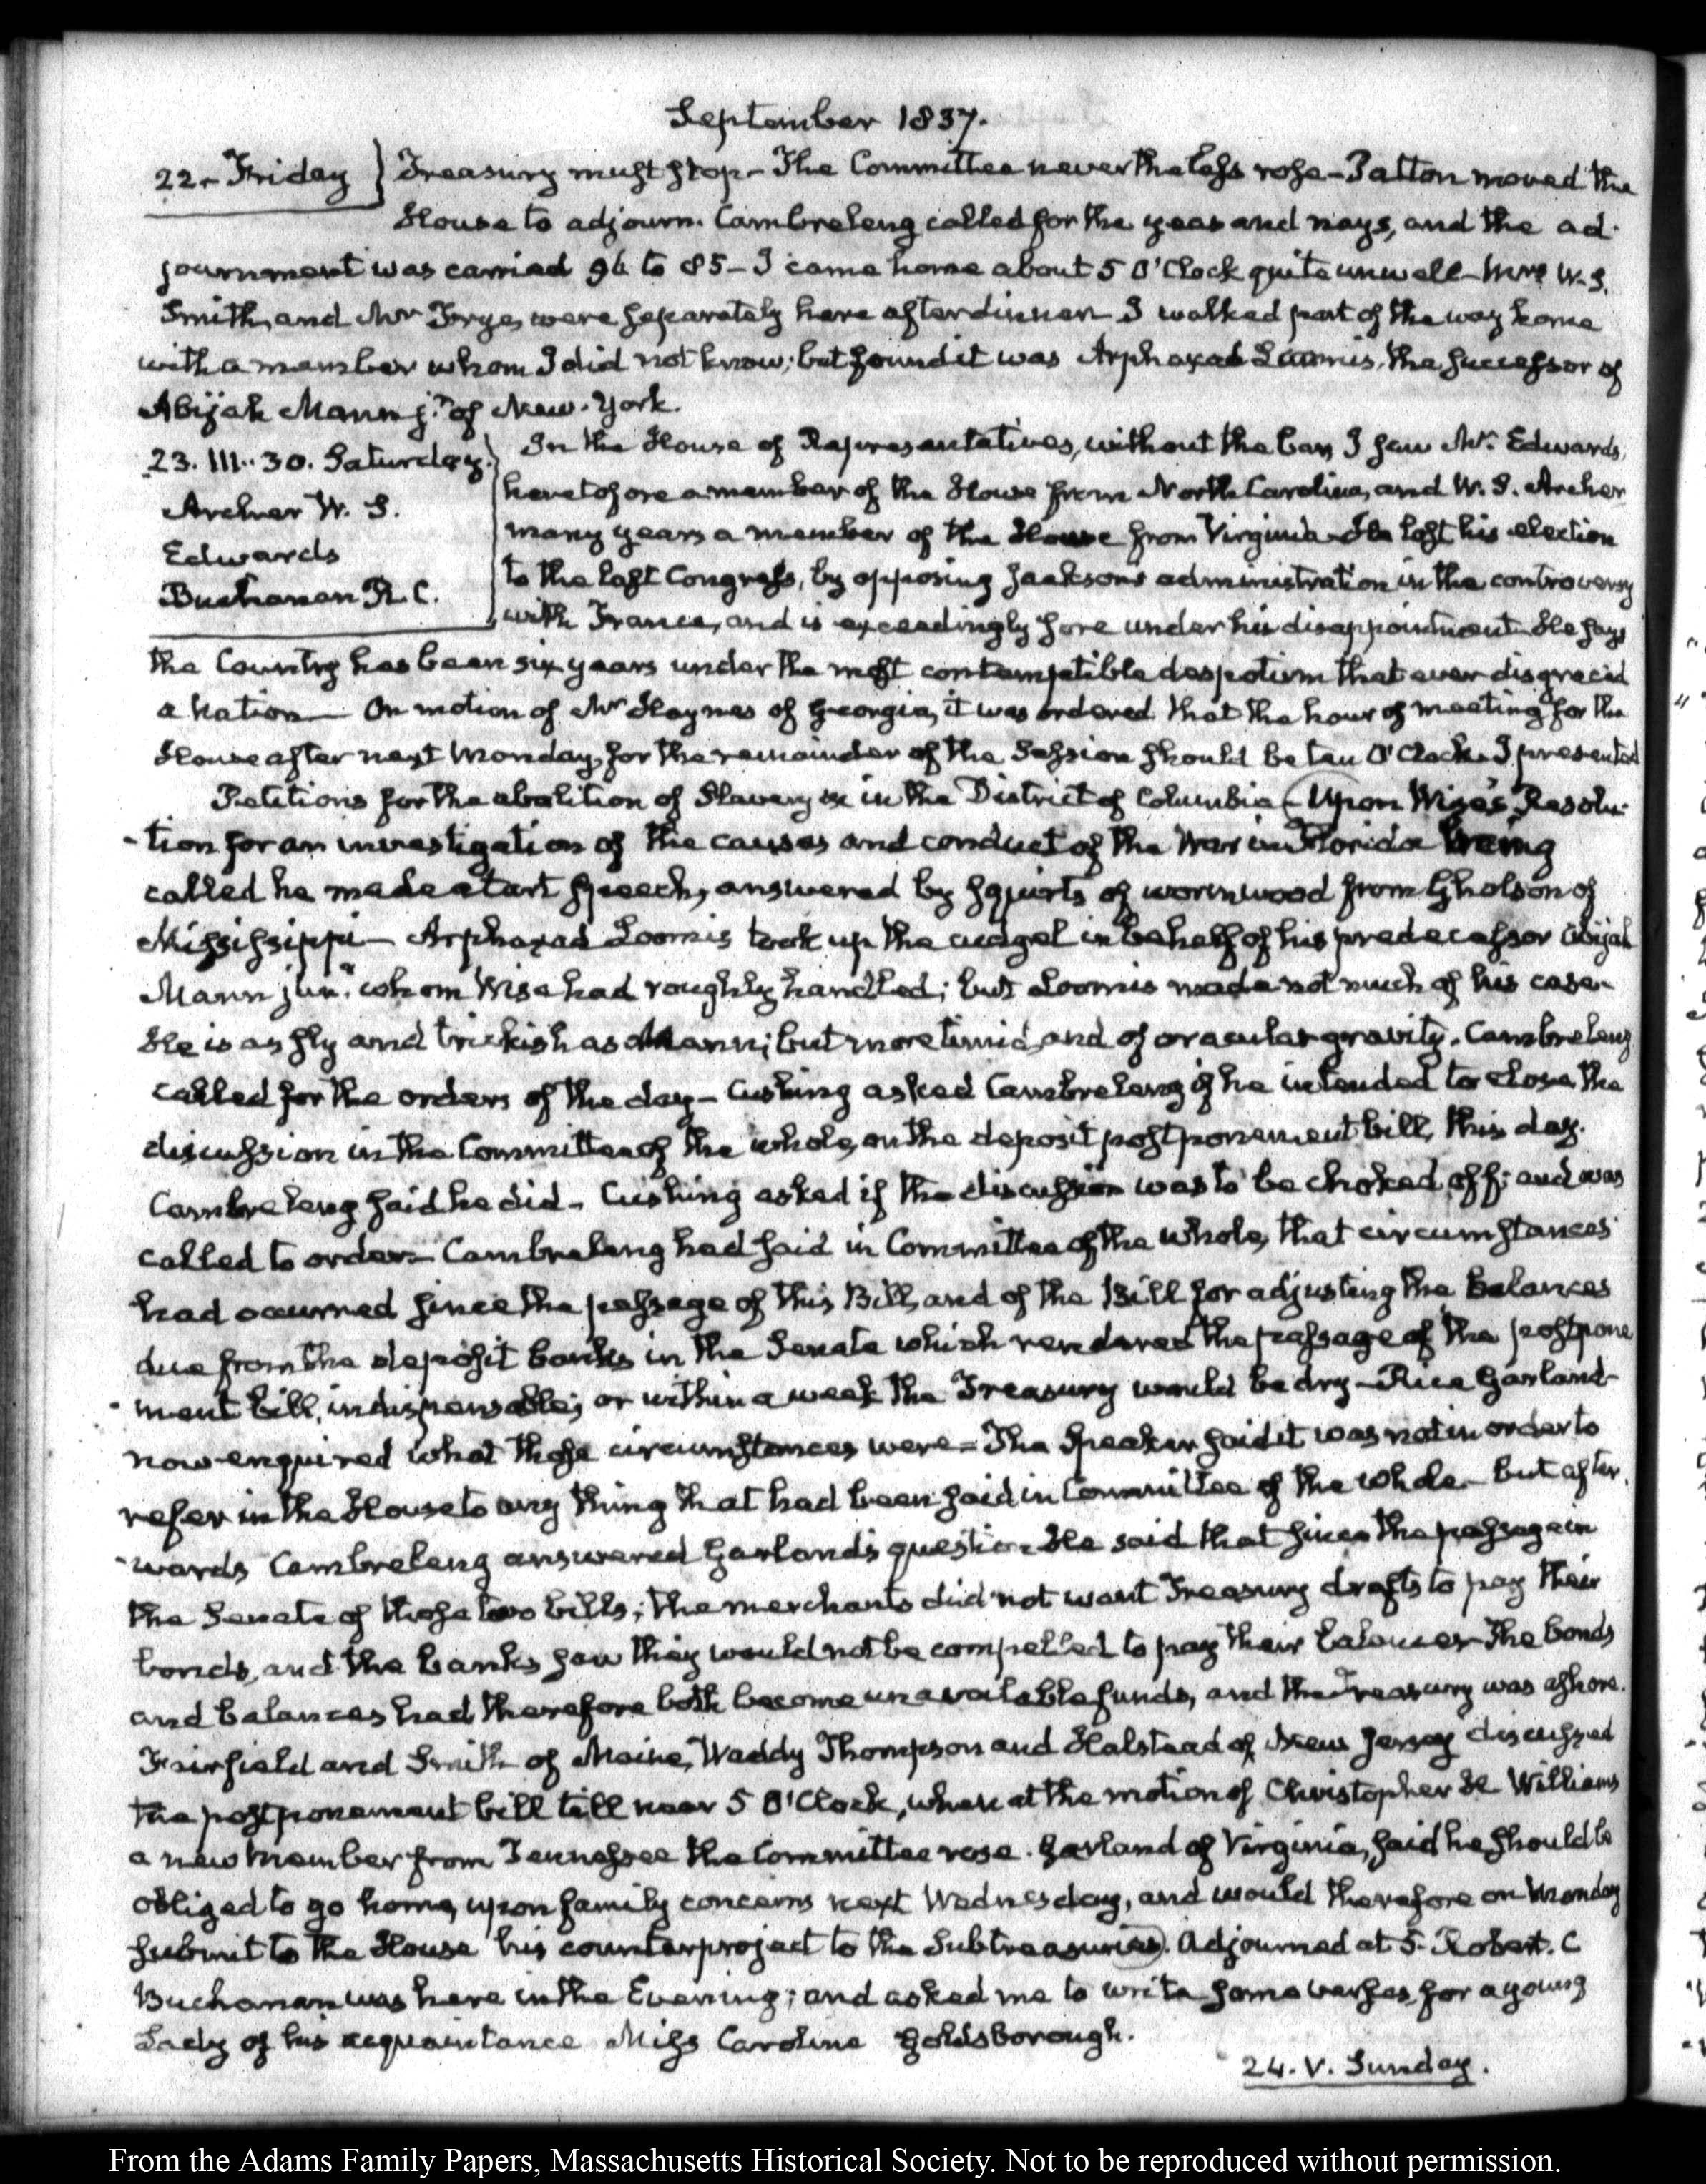 September 1837.
22. Friday } Treasury must stop — The Committee nevertheless rose — Patton moved the
House to adjourn. Cambreleng called for the yeas and nays, and the ad-
journment was carried 96 to 85 — I came home about 5 O'Clock quite unwell — Mrs W. S.
Smith, and Mr Frye, were separately here after dinner I walked part of the way home
with a member whom I did not know; but found it was Arphaxad Loomis, the successor of
Abijah Mann jr. of New-York.
23. III..30. Saturday.
Archer W. S.
Edwards
Buchanan R. C.
In the House of Representatives, without the bar, I saw Mr. Edwards,
heretofore a member of the House from North Carolina, and W. S. Archer
many years a member of the House from Virginia — He lost his election
to the last Congress, by opposing Jackson's administration in the controversy
with France, and is exceedingly sore under his disappointment. He says
the Country has been six years under the most contemptible despotism that ever disgraced
a Nation — On motion of Mr Haynes of Georgia, it was ordered that the hour of meeting for the
House after next Monday, for the remainder of the Session should be ten O'Clock. I presented
Petitions for the abolition of Slavery &c in the District of Columbia (Upon Wise's Resolu-
-tion for an investigation of the causes and conduct of the War in Florida being
called he made a tart speech, answered by squirts of wormwood from Gholson of
Mississippi — Arphaxad Loomis took up the cudgel in behalf of his predecessor Abijah
Mann junr. whom Wise had roughly handled; but Loomis made not much of his case.
He is as sly and trickish as Mann; but more timid, and of oracular gravity. Cambreleng
called for the orders of the day — Cushing asked Cambreleng if he intended to close the
discussion in the Committee of the whole, on the deposit postponement bill, this day.
Cambreleng said he did — Cushing asked if the discussion was to be choked off; and was
called to order — Cambreleng had said in Committee of the whole, that circumstances
had occurred since the passage of this Bill, and of the Bill for adjusting the balances
due from the deposit banks in the Senate which rendered the passage of the postpone
-ment bill, indispensable; or within a week the Treasury would be dry — Rice Garland
now enquired what those circumstances were — The Speaker said it was not in order to
refer in the House to any thing that had been said in Committee of the whole — but after-
-wards Cambreleng answered Garland's question. He said that since the passage in
the Senate of those two bills; the merchants did not want Treasury drafts to pay their
bonds, and the banks saw they would not be compelled to pay their balances — The bonds
and balances had therefore both become unavailable funds, and the Treasury was ashore.
Fairfield and Smith of Maine, Waddy Thompson and Halstead of New Jersey discussed
the postponement bill till near 5 O'Clock, when at the motion of Christopher H Williams
a new member from Tennessee the Committee rose. Garland of Virginia, said he should be
obliged to go home, upon family concerns next Wednesday, and would therefore on Monday
submit to the House his counterproject to the Subtreasuries). Adjourned at 5. Robert. C
Buchanan was here in the Evening; and asked me to write some verses, for a young
Lady of his acquaintance Miss Caroline Goldsborough.
24. V. Sunday.
From the Adams Family Papers, Massachusetts Historical Society. Not to be reproduced without permission.